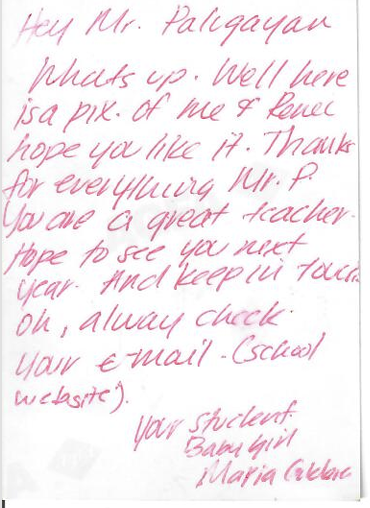 Hey Mr. Paligayan
Whats up. Well here
is a pix. of me & Renee
hope you like it. Thanks
for everything Mr. P.
You are a great teacher.
Hope to see you next
year. And keep in touch.
Oh, alway check
your e-mail. (school
website).
your student.
Baby Girl
Maria